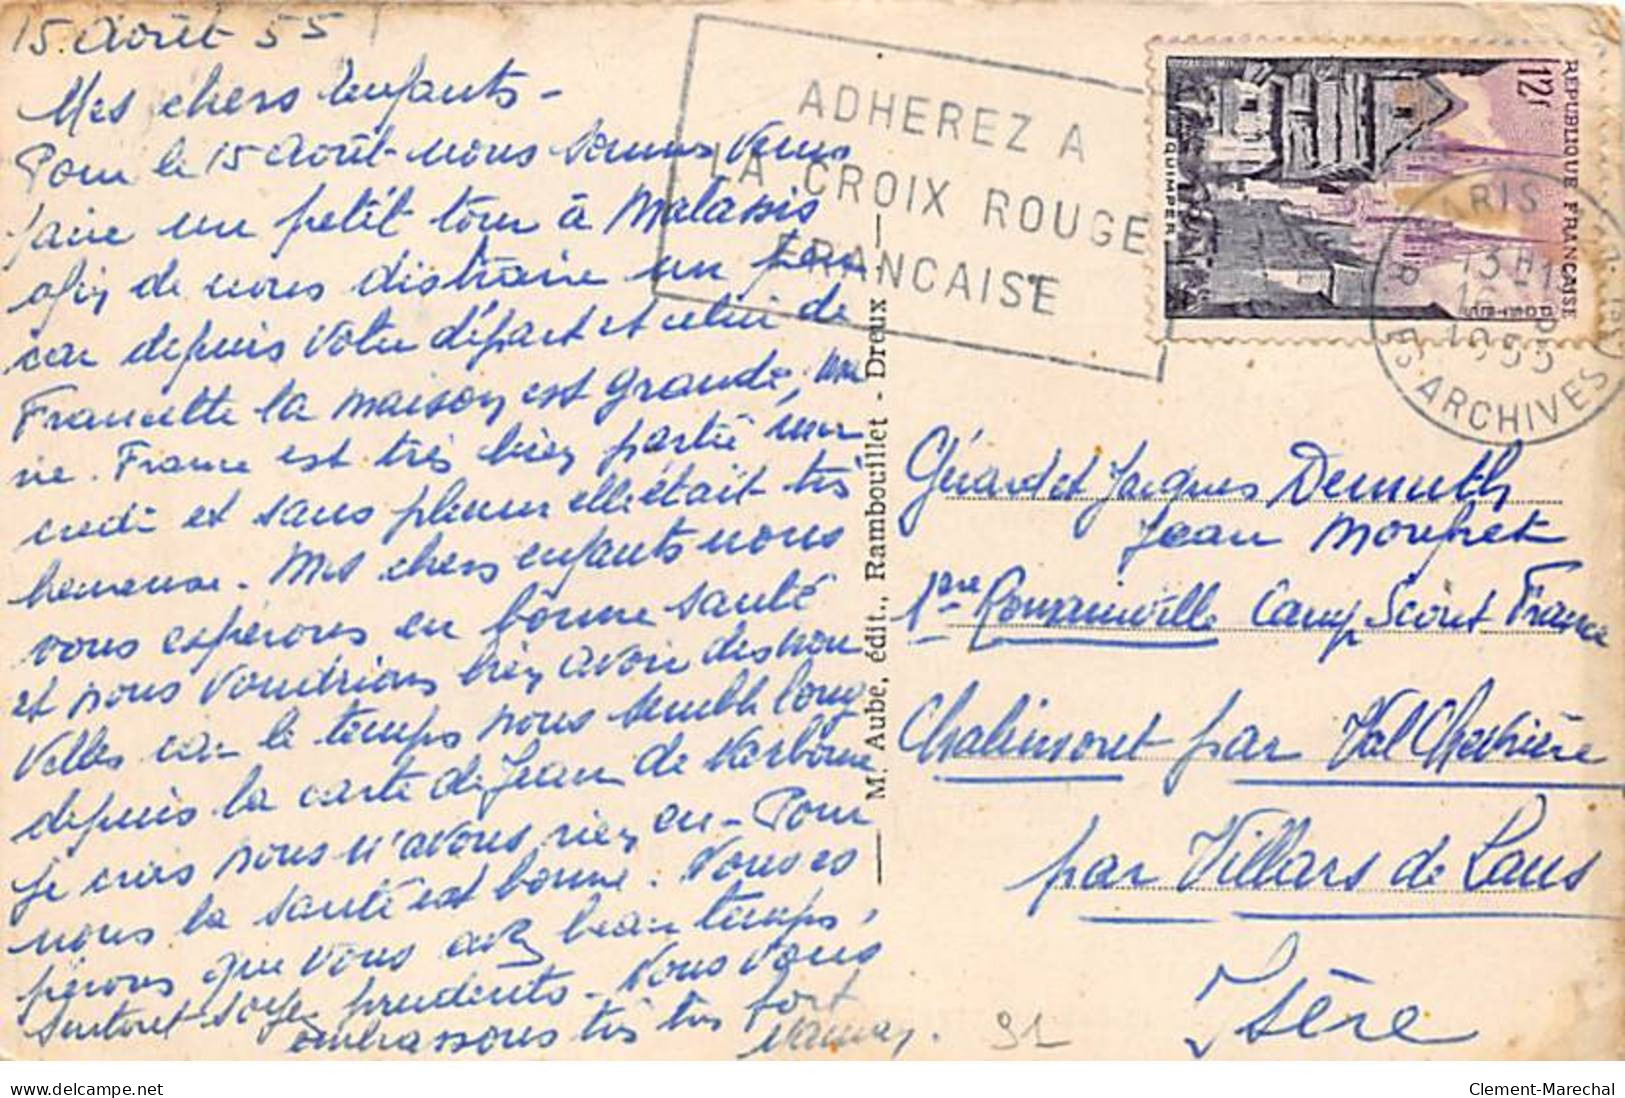 15. Août 55
Mes chers enfants -
Pour le 15 Août nous sommes venus
faire un petit tour à Malassis
afin de nous distraire un peu
car depuis votre départ et celui de
Francette la maison est grande,
France est très bien partie mer
credi et sans pleurer elle était très
heureuse. Mes chers enfants nous
vous espérons en bonne santé
et nous voudrions bien avoir des nou
velles car le temps nous semble long
depuis la carte de Jean de Narbonne
je crois nous n'avons rien eu - Pour
nous la santé est bonne. Nous es
pérons que vous avez beau temps,
surtout soyez prudents - Nous vous
embrassons très très fort
91
M. Aube, édit., Rambouillet - Dreux
ADHEREZ A
LA CROIX ROUGE
FRANCAISE
12f
REPUBLIQUE FRANCAISE
QUIMPER
PARIS
13H
16
1955
ARCHIVES
Gérard et Jacques Demuth
Jean Moufret
1ère Romainville Camp Scout France
Chalimont par Val Chevrière
par Villars de Lans
Isère
delcampe.net
Clement-Marechal